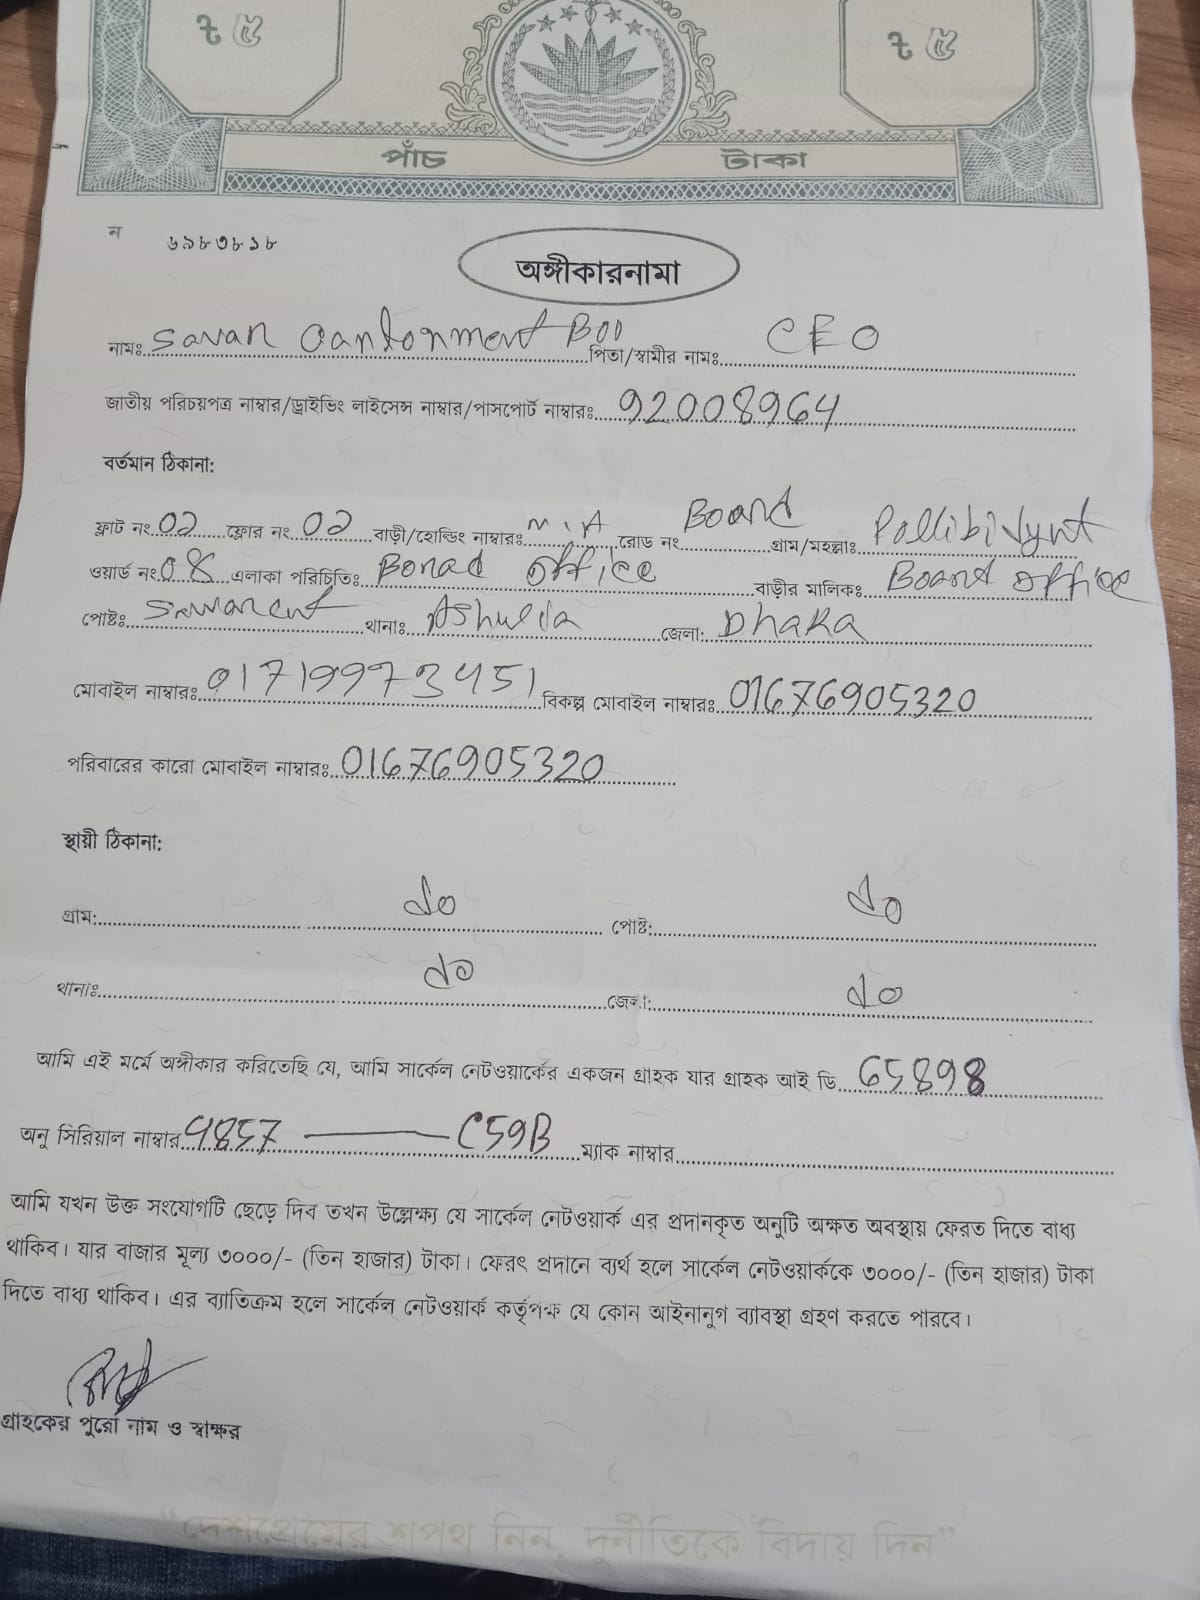 ৳ ৫ ৳ ৫
পাঁচ টাকা
ন ৬৯৮৩৮১৮
অঙ্গীকারনামা
নামঃ Savar Cantonment Bod পিতা/স্বামীর নামঃ CEO
জাতীয় পরিচয়পত্র নাম্বার/ড্রাইভিং লাইসেন্স নাম্বার/পাসপোর্ট নাম্বারঃ 92008964
বর্তমান ঠিকানা:
ফ্লাট নং 02 ফ্লোর নং 02 বাড়ী/হোল্ডিং নাম্বারঃ N.A রোড নং Board গ্রাম/মহল্লাঃ Pollibidyut
ওয়ার্ড নং 08 এলাকা পরিচিতিঃ Borad office বাড়ীর মালিকঃ Board office
পোষ্টঃ থানাঃ Ashulia জেলা: Dhaka
মোবাইল নাম্বারঃ 01719973451 বিকল্প মোবাইল নাম্বারঃ 01676905320
পরিবারের কারো মোবাইল নাম্বারঃ 01676905320
স্থায়ী ঠিকানা:
গ্রাম: do পোষ্ট: do
থানাঃ do জেলা: do
আমি এই মর্মে অঙ্গীকার করিতেছি যে, আমি সার্কেল নেটওয়ার্কের একজন গ্রাহক যার গ্রাহক আই ডি 65898
অনু সিরিয়াল নাম্বার 4857 — C59B ম্যাক নাম্বার
আমি যখন উক্ত সংযোগটি ছেড়ে দিব তখন উল্লেক্ষ্য যে সার্কেল নেটওয়ার্ক এর প্রদানকৃত অনুটি অক্ষত অবস্থায় ফেরত দিতে বাধ্য
থাকিব। যার বাজার মূল্য ৩০০০/- (তিন হাজার) টাকা। ফেরৎ প্রদানে ব্যর্থ হলে সার্কেল নেটওয়ার্ককে ৩০০০/- (তিন হাজার) টাকা
দিতে বাধ্য থাকিব। এর ব্যাতিক্রম হলে সার্কেল নেটওয়ার্ক কর্তৃপক্ষ যে কোন আইনানুগ ব্যাবস্থা গ্রহণ করতে পারবে।
গ্রাহকের পুরো নাম ও স্বাক্ষর
“দেশপ্রেমের শপথ নিন, দুর্নীতিকে বিদায় দিন”